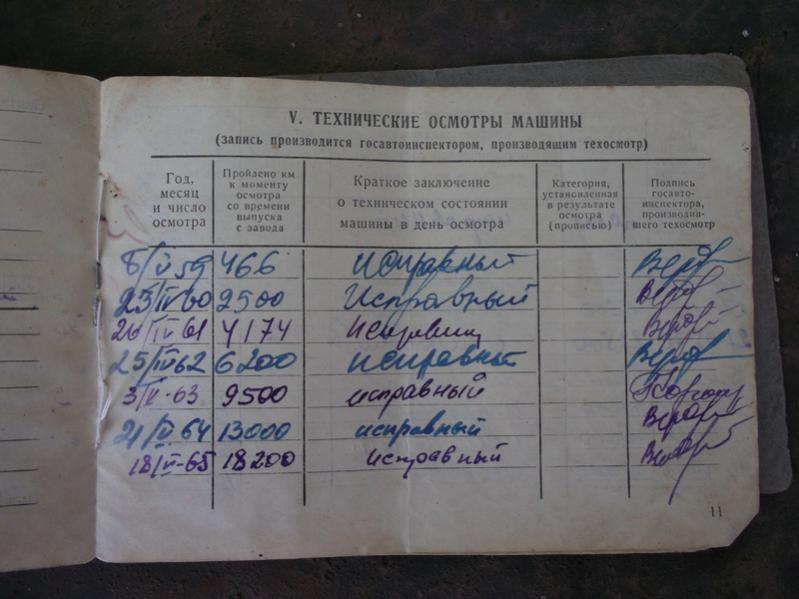 V. ТЕХНИЧЕСКИЕ ОСМОТРЫ МАШИНЫ
(запись производится госавтоинспектором, производящим техосмотр)
Год, месяц и число осмотра
Пройдено км к моменту осмотра со времени выпуска с завода
Краткое заключение о техническом состоянии машины в день осмотра
Категория, установленная в результате осмотра (прописью)
Подпись госавто-инспектора, производив-шего техосмотр
6/V 59 466 исправный
23/IV 60 2500 Исправный
26/IV 61 4174
25/IV 62 6200 исправный
3/V-63 9500 исправный
21/V 64 13000 исправный
18/V-65 18200 исправный
11